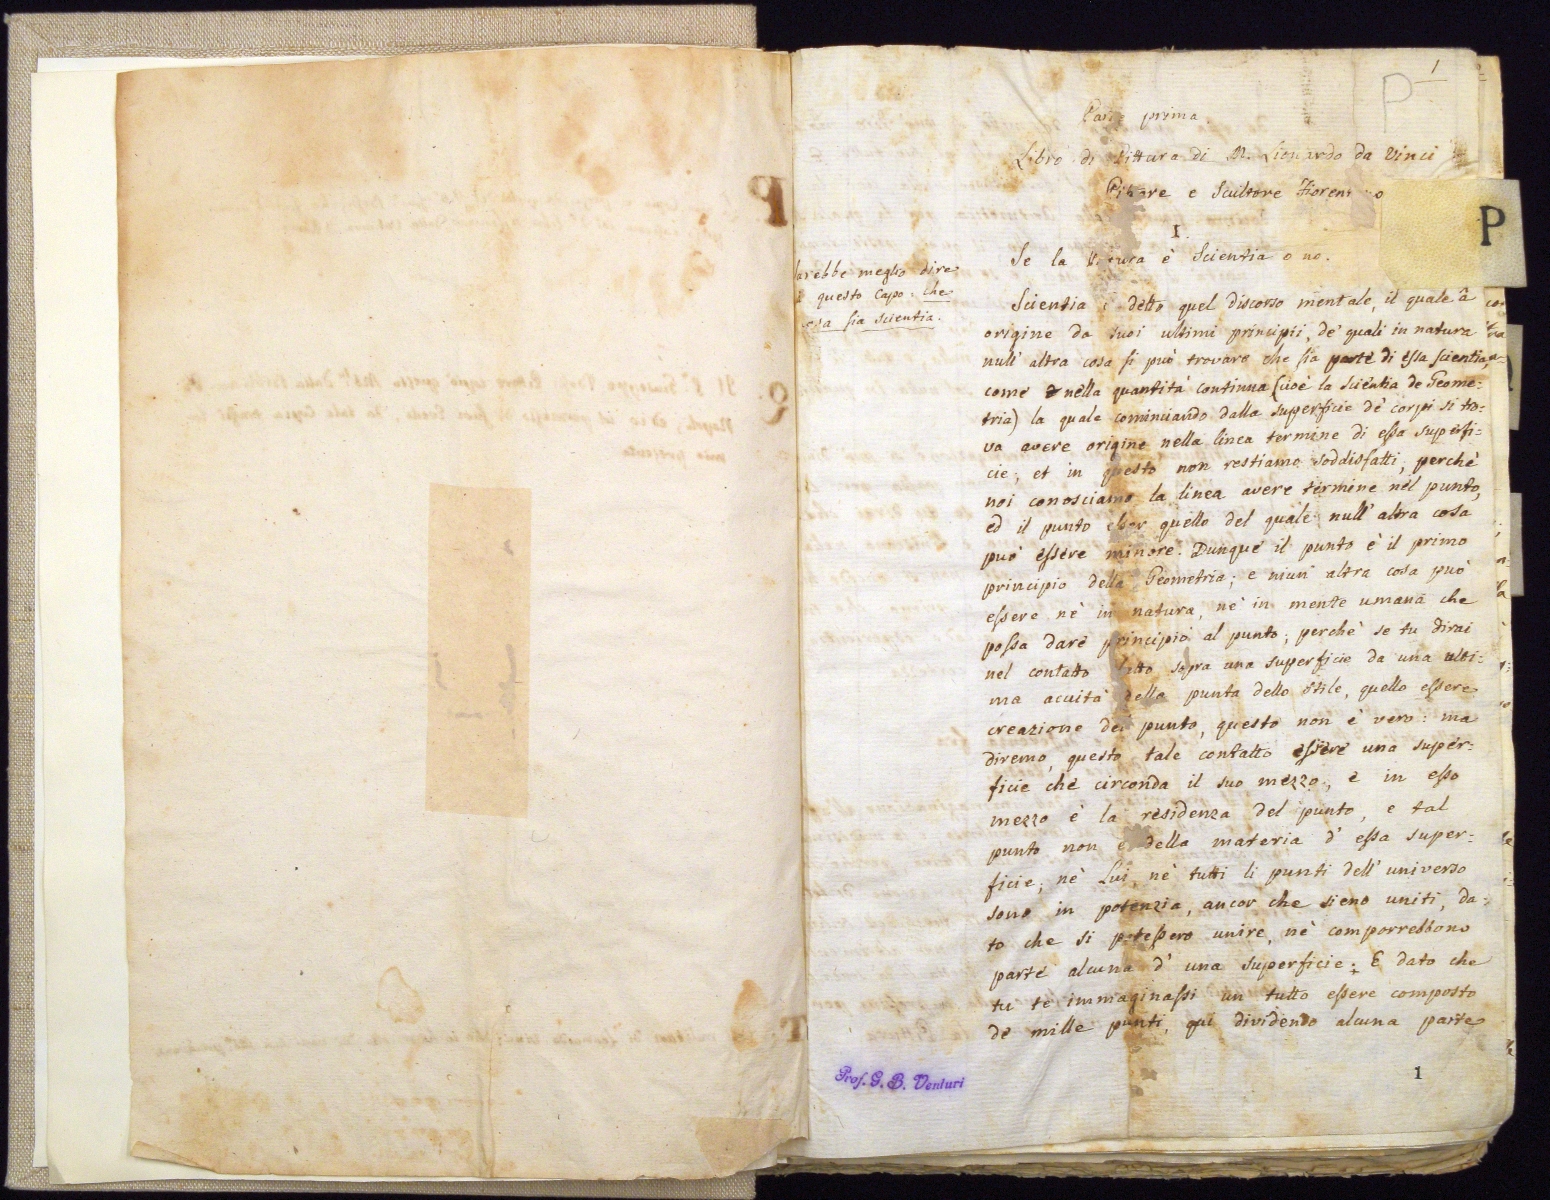 1
P
Parte prima
Libro di Pittura di M. Lionardo da Vinci
Pittore e Scultore Fiorentino
P
1.
Se la Pittura è Scientia o no.
sarebbe meglio dire
questo Capo: che
cosa sia scientia.
Scientia è detto quel discorso mentale, il quale à
origine da suoi ultimi principii, de' quali in natura
null' altra cosa si può trovare che sia parte di essa scientia,
come nella quantità continua (cioè la scientia de Geome-
tria) la quale cominciando dalla superficie de' corpi si tro-
va avere origine nella linea termine di essa superfi-
cie; et in questo non restiamo soddisfatti, perchè
noi conosciamo la linea avere termine nel punto,
ed il punto esser quello del quale null' altra cosa
può essere minore. Dunque il punto è il primo
principio della Geometria; e niun' altra cosa può
essere nè in natura, nè in mente umana che
possa dare principio al punto; perchè se tu dirai
nel contatto fatto sopra una superficie da una ulti-
ma acuità della punta dello stile, quello essere
creazione del punto, questo non è vero: ma
diremo, questo tale contatto essere una super-
ficie che circonda il suo mezzo, e in esso
mezzo è la residenza del punto, e tal
punto non è della materia d' essa super-
ficie; nè Lui, nè tutti li punti dell' universo
sono in potenzia, ancor che sieno uniti, da-
to che si potessero unire, nè comporrebbono
parte alcuna d' una superficie; E dato che
tu te immaginassi un tutto essere composto
de mille punti, qui dividendo alcuna parte
Prof. G. B. Venturi
1